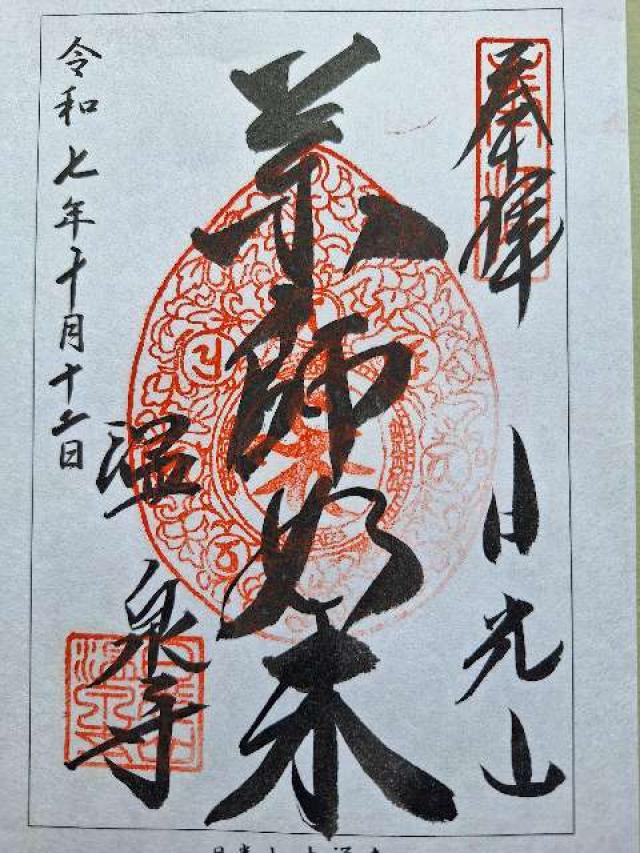 奉拝
日光山
薬師如来
温泉寺
令和七年十月十二日